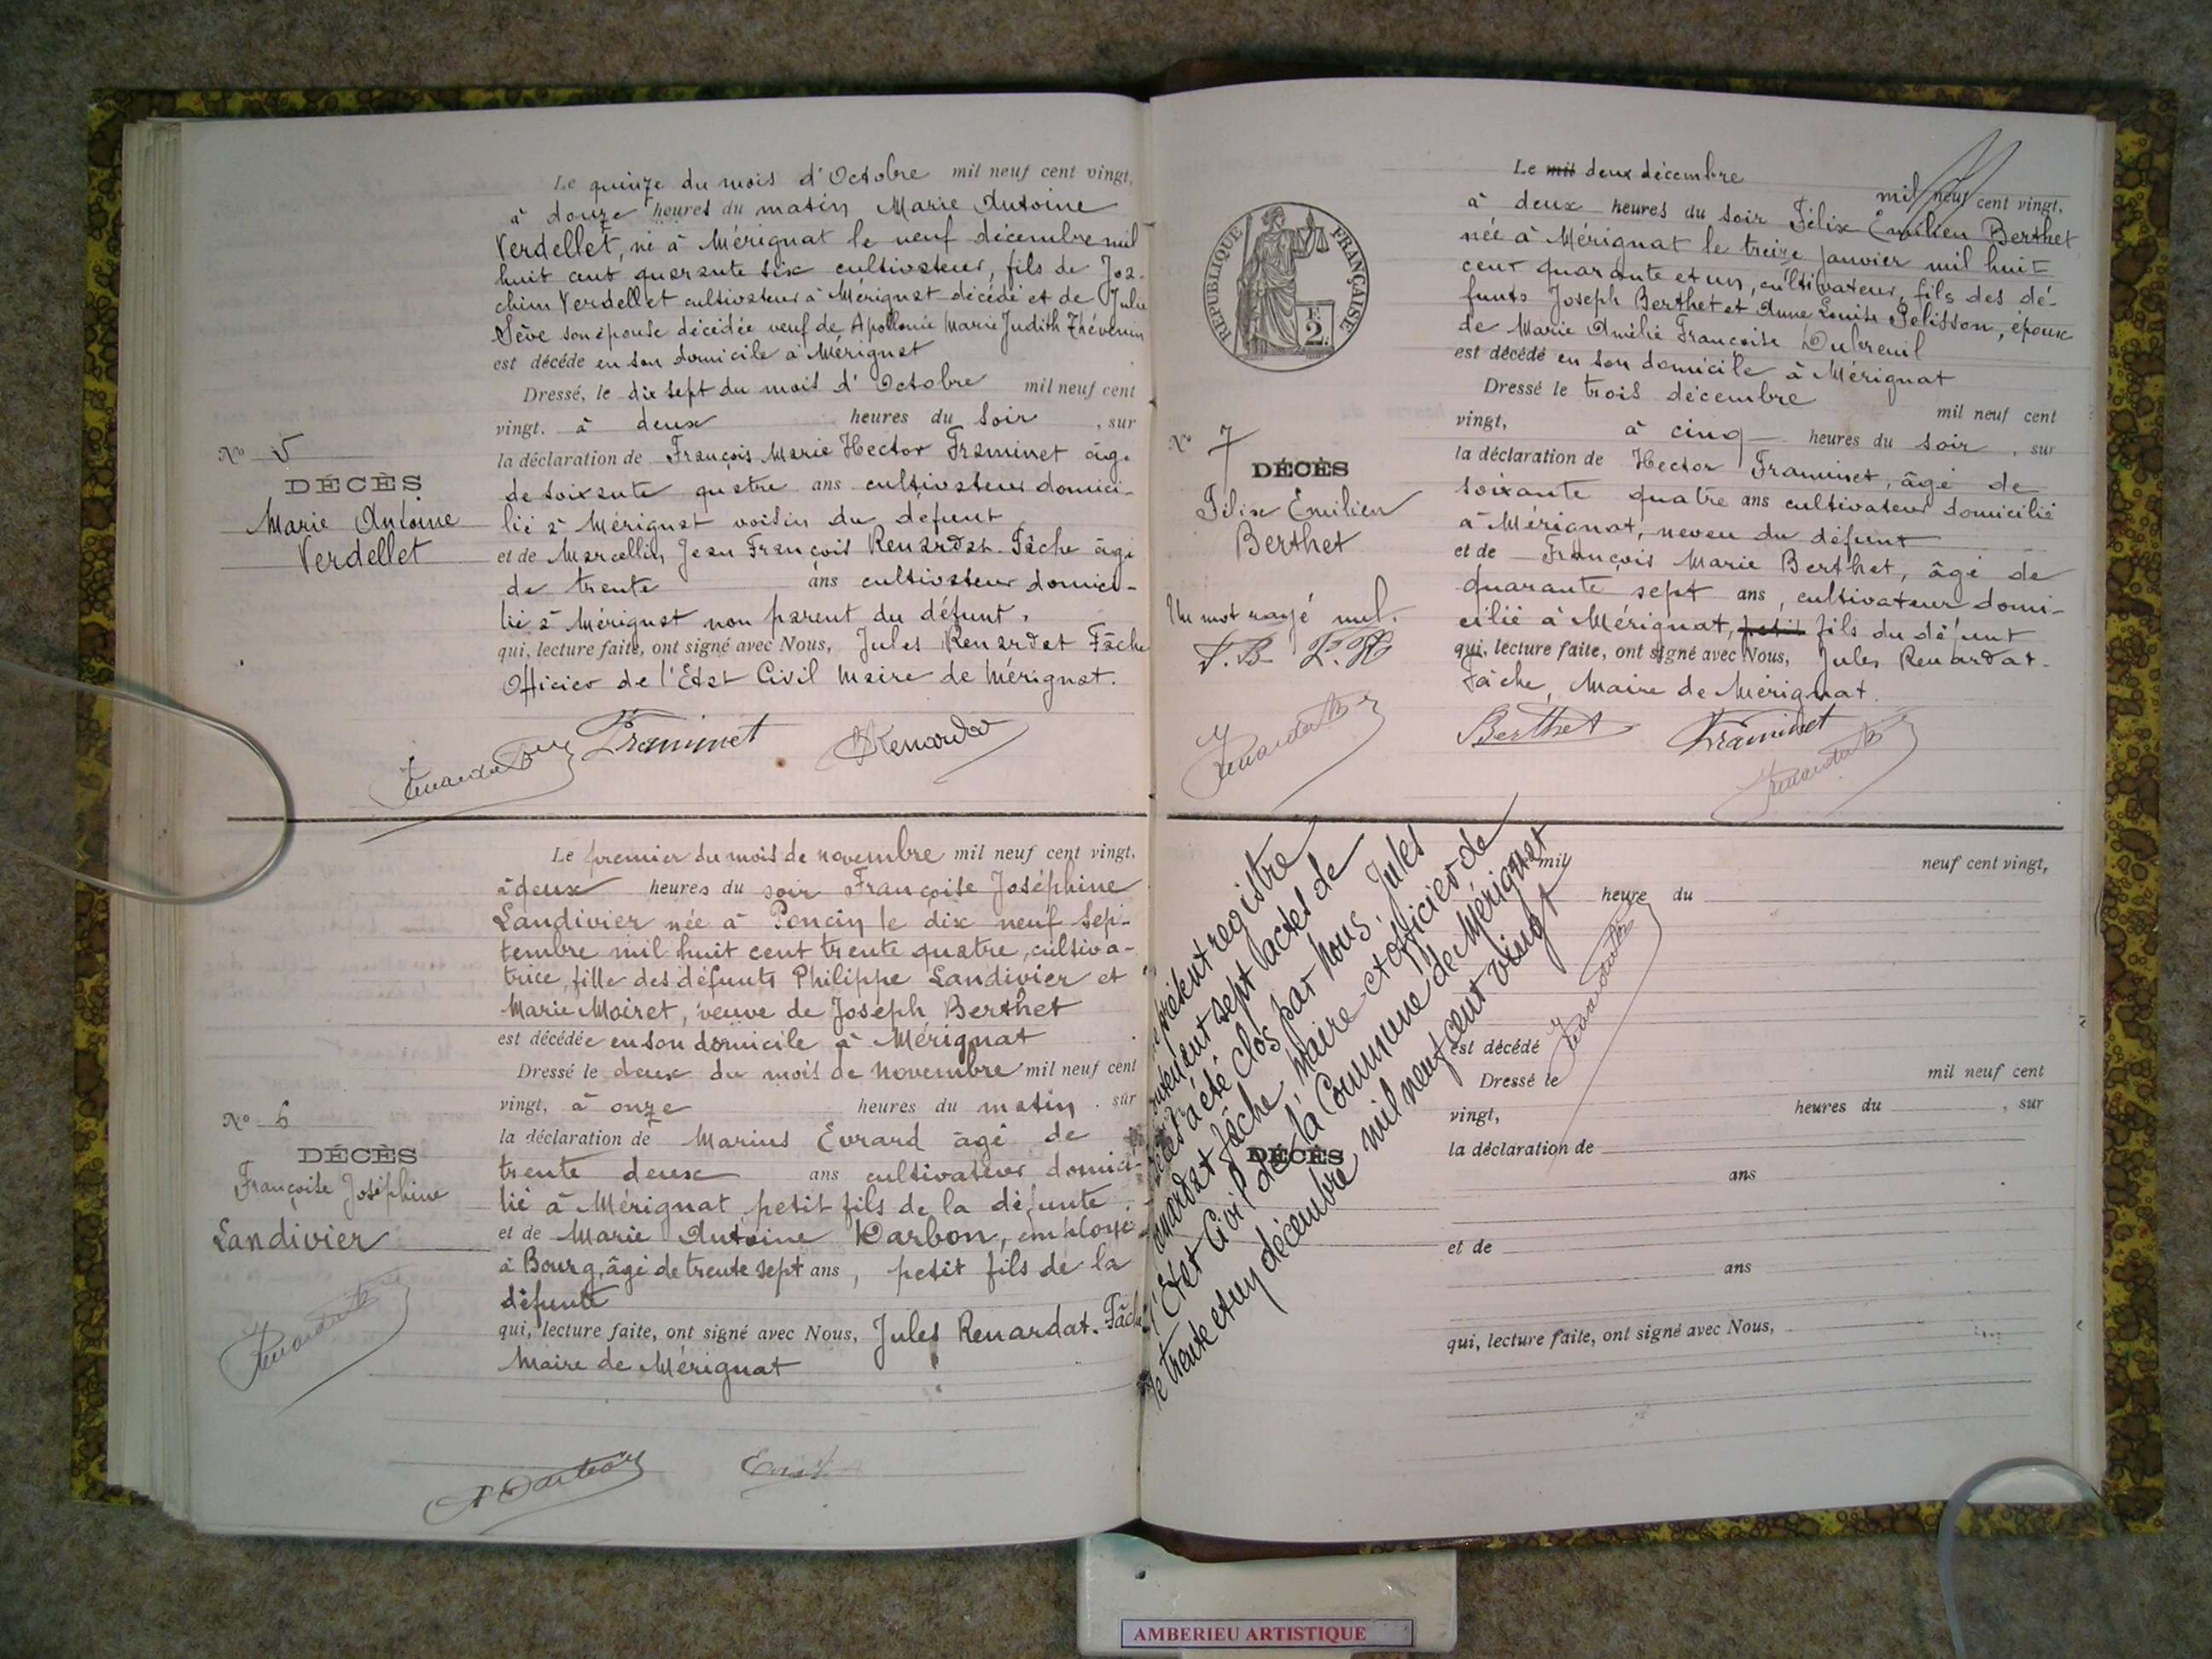 Le quinze du mois d'Octobre mil neuf cent vingt,
à douze heures du matin Marie Antoine
Verdellet, né à Mérignat le neuf décembre mil
huit cent quarante six cultivateur, fils de Joa-
chim Verdellet cultivateur à Mérignat décédé et de Julie
Sève son épouse décédée veuf de Apollonie Marie Judith Thévenin
est décédé en son domicile à Mérignat
Dressé, le dix sept du mois d'Octobre mil neuf cent
vingt, à deux heures du soir, sur
la déclaration de François Marie Hector Framinet âgé
de soixante quatre ans cultivateur domici-
lié à Mérignat voisin du défunt
et de Marcellin Jean François Renardat-Fâche âgé
de trente ans cultivateur domici-
lié à Mérignat non parent du défunt.
qui, lecture faite, ont signé avec Nous, Jules Renardat Fâche
Officier de l'Etat Civil Maire de Mérignat.
Framinet Renardat
N° 5
DÉCÈS
Marie Antoine
Verdellet
Le premier du mois de novembre mil neuf cent vingt,
à deux heures du soir Françoise Joséphine
Landivier née à Poncin le dix neuf sep-
tembre mil huit cent trente quatre, cultiva-
trice, fille des défunts Philippe Landivier et
Marie Moiret, veuve de Joseph Berthet
est décédée en son domicile à Mérignat
Dressé le deux du mois de Novembre mil neuf cent
vingt, à onze heures du matin, sur
la déclaration de Marius Evrard âgé de
trente deux ans cultivateur domici-
lié à Mérignat petit fils de la défunte
et de Marie Antoine Darbon, employé
à Bourg, âgé de trente sept ans, petit fils de la
défunte
qui, lecture faite, ont signé avec Nous, Jules Renardat-Fâche
Maire de Mérignat
N° 6
DÉCÈS
Françoise Joséphine
Landivier
Darbon
RÉPUBLIQUE FRANÇAISE
F.
2.
Le mil deux décembre mil neuf cent vingt,
à deux heures du soir Félix Emilien Berthet
née à Mérignat le treize janvier mil huit
cent quarante et un, cultivateur, fils des dé-
funts Joseph Berthet et Anne Louise Pelisson, époux
de Marie Amélie Françoise Dubreuil
est décédé en son domicile à Mérignat
Dressé le trois décembre mil neuf cent
vingt, à cinq heures du soir, sur
la déclaration de Hector Framinet, âgé de
soixante quatre ans cultivateur domicilié
à Mérignat, neveu du défunt
et de François Marie Berthet, âgé de
quarante sept ans, cultivateur domi-
cilié à Mérignat, petit fils du défunt
qui, lecture faite, ont signé avec Nous, Jules Renardat-
Fâche, Maire de Mérignat.
Berthet Framinet
N° 7
DÉCÈS
Félix Emilien
Berthet
Un mot rayé nul.
présent registre
contenant sept actes de
décès a été clos par nous, Jules
Renardat Fâche Maire et officier de
l'Etat Civil de la Commune de Mérignat
le trente et un décembre mil neuf cent vingt
mil neuf cent vingt,
heure du
est décédé
Dressé le mil neuf cent
vingt, heures du , sur
la déclaration de
ans
DÉCÈS
et de
ans
qui, lecture faite, ont signé avec Nous,
AMBERIEU ARTISTIQUE